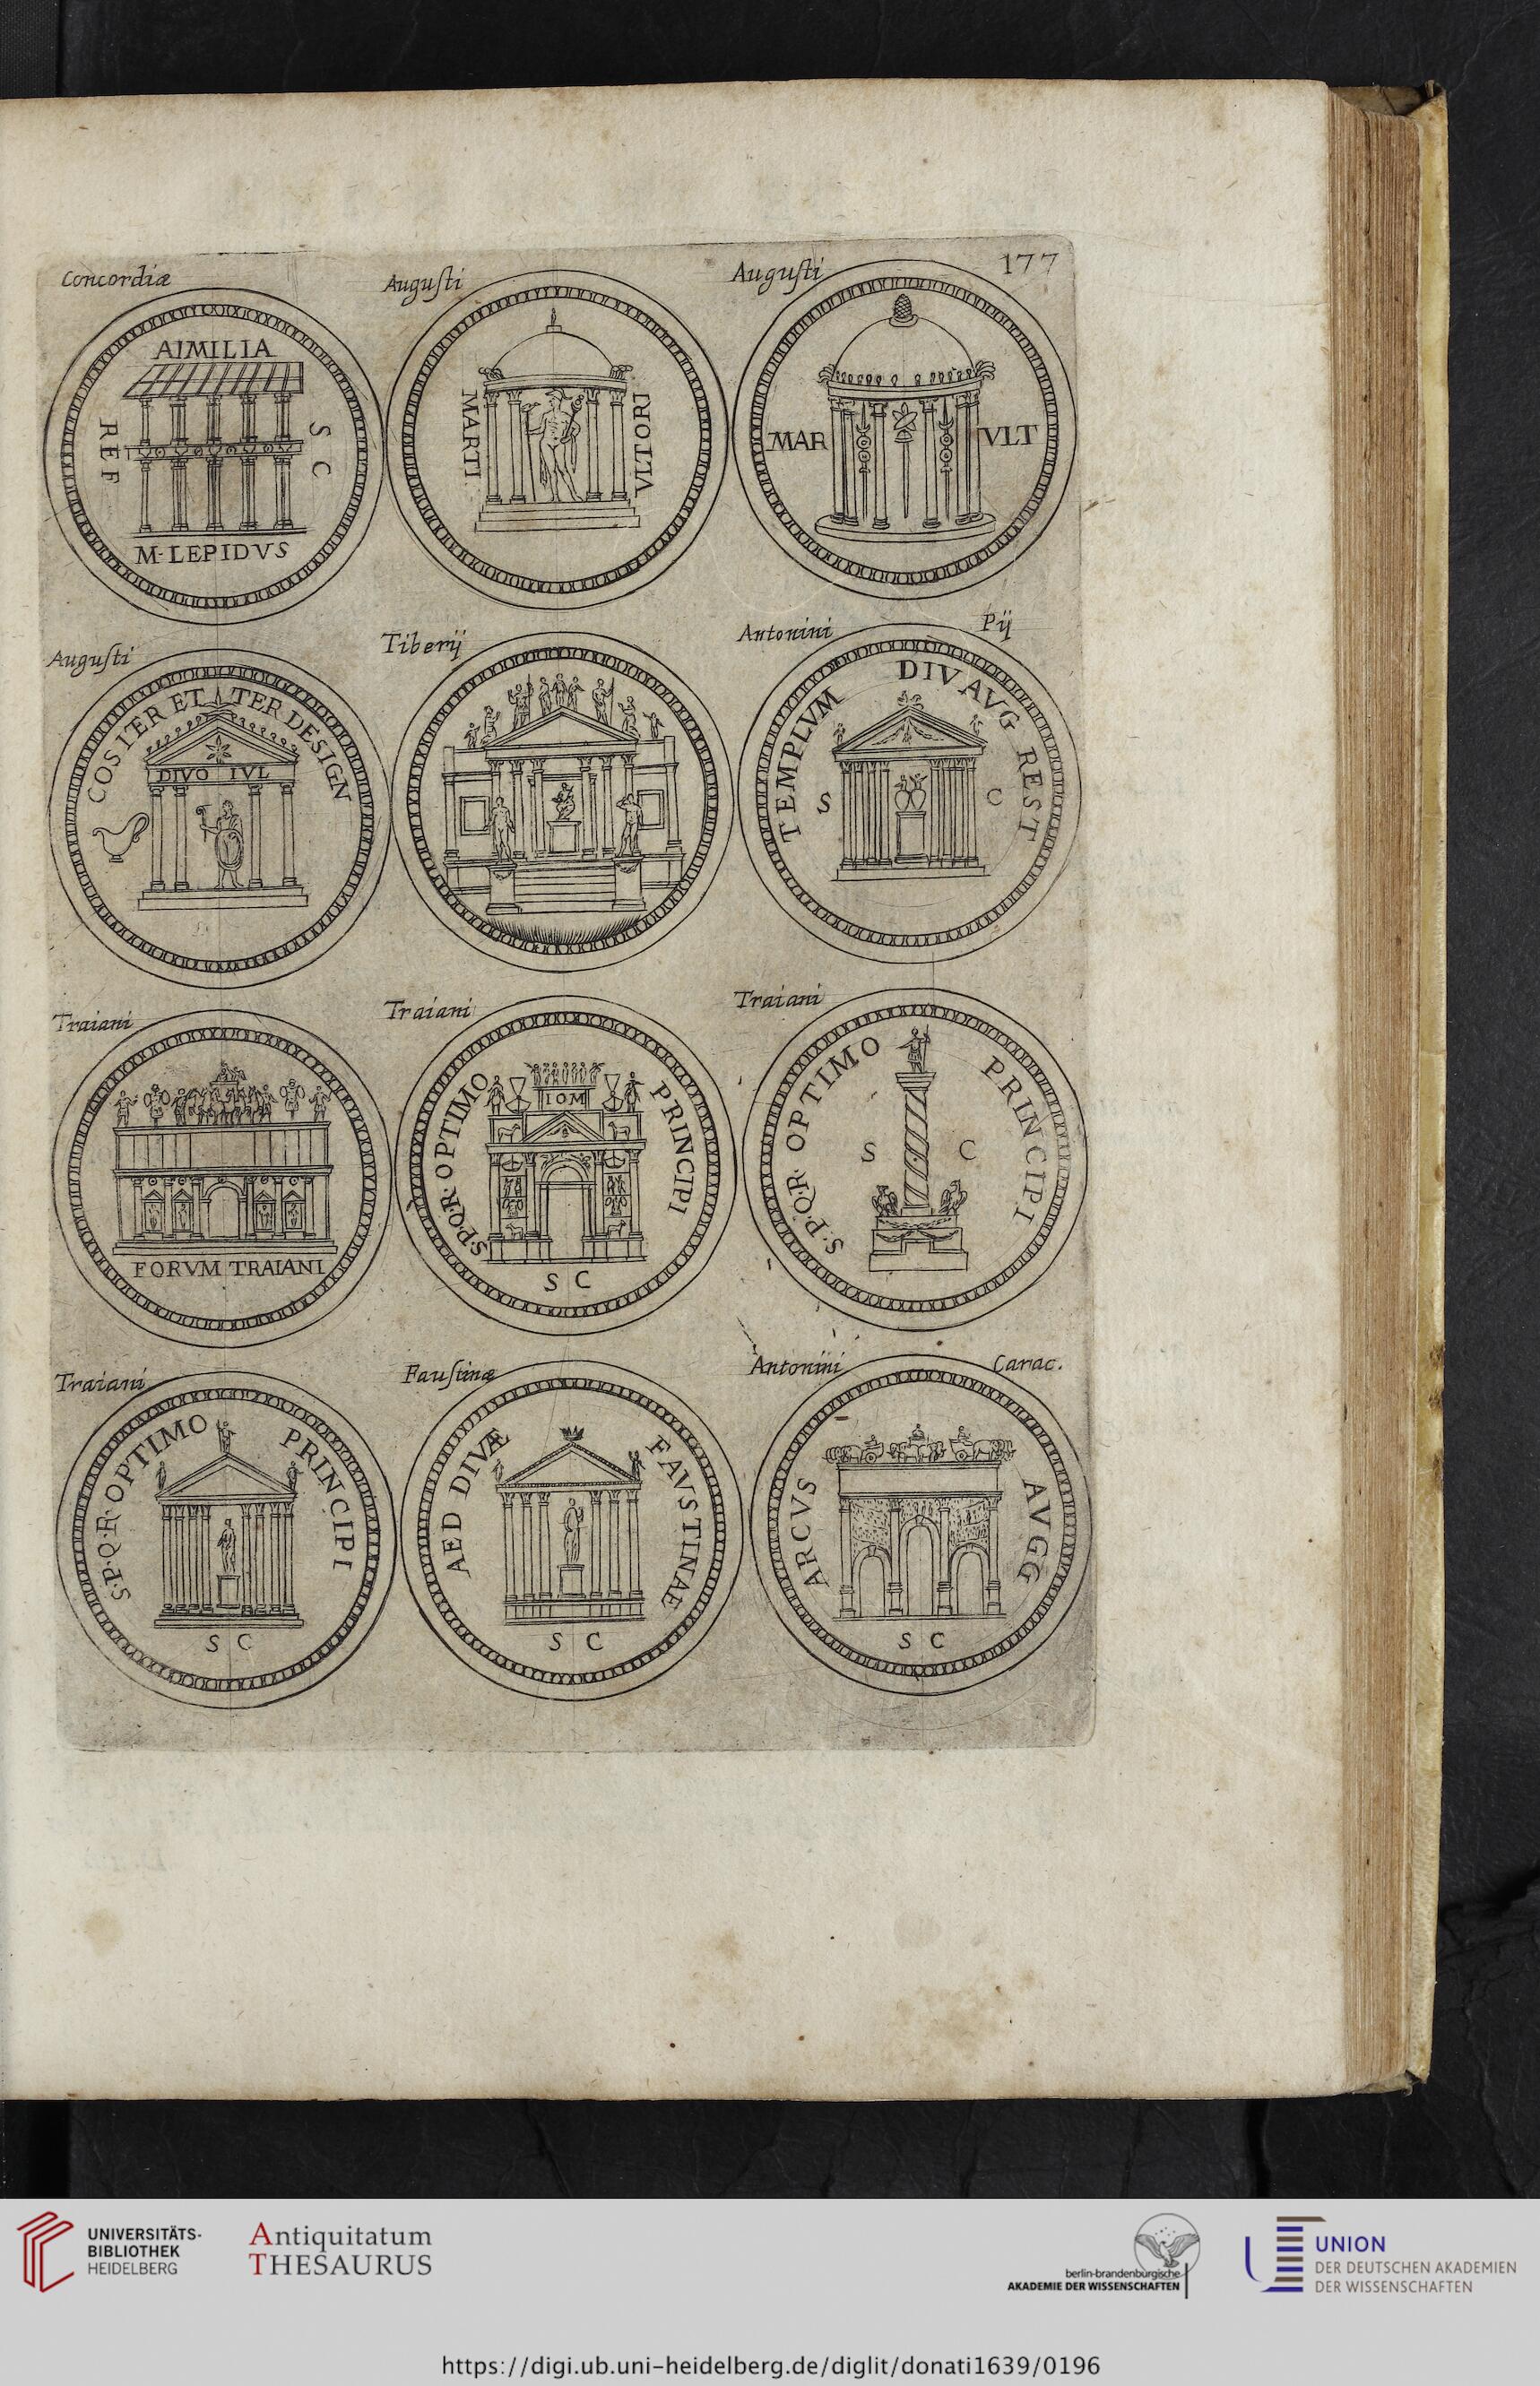 177
Concordiæ
AIMILIA
REF
S C
M·LEPIDVS
Auguſti
MARTI
VLTORI
Auguſti
MAR VLT
Auguſti
COS ITER ET TER DESIGN
DIVO IVL
Tiberij
Antonini Pij
TEMPLVM DIV AVG REST
S C
Traiani
FORVM TRAIANI
Traiani
S·P·Q·R· OPTIMO PRINCIPI
IOM
S C
Traiani
S·P·Q·R· OPTIMO PRINCIPI
S C
Traiani
S·P·Q·R· OPTIMO PRINCIPI
S C
Fauſtinæ
AED DIVÆ FAVSTINAE
S C
Antonini Carac.
ARCVS AVGG
S C
UNIVERSITÄTS-
BIBLIOTHEK
HEIDELBERG
Antiquitatum
THESAURUS
berlin-brandenburgische
AKADEMIE DER WISSENSCHAFTEN
UNION
DER DEUTSCHEN AKADEMIEN
DER WISSENSCHAFTEN
https://digi.ub.uni-heidelberg.de/diglit/donati1639/0196